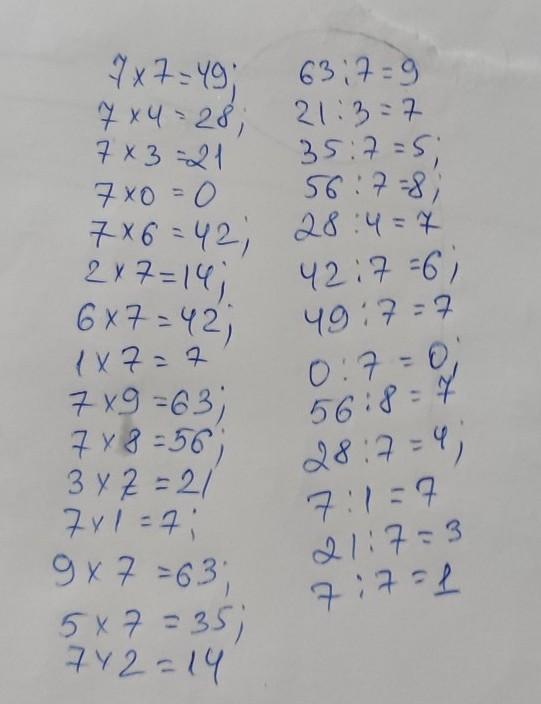 7 × 7 = 49;
7 × 4 = 28;
7 × 3 = 21
7 × 0 = 0
7 × 6 = 42;
2 × 7 = 14;
6 × 7 = 42;
1 × 7 = 7
7 × 9 = 63;
7 × 8 = 56;
3 × 7 = 21
7 × 1 = 7;
9 × 7 = 63;
5 × 7 = 35;
7 × 2 = 14
63 : 7 = 9
21 : 3 = 7
35 : 7 = 5;
56 : 7 = 8;
28 : 4 = 7
42 : 7 = 6;
49 : 7 = 7
0 : 7 = 0;
56 : 8 = 7
28 : 7 = 4;
7 : 1 = 7
21 : 7 = 3
7 : 7 = 1